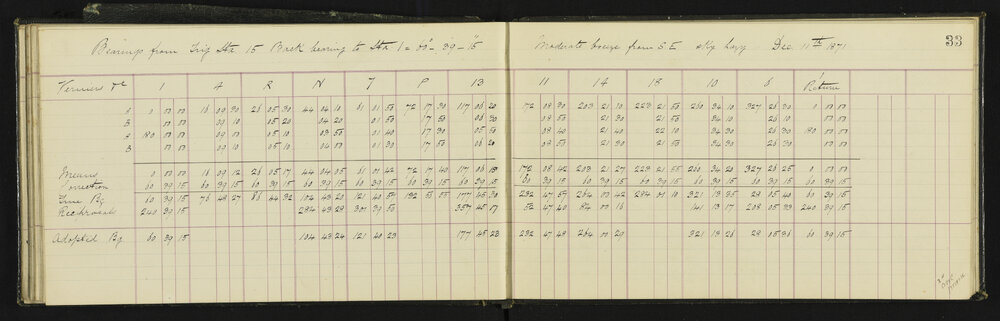 Bearings from Trig Stn 15 Back bearing to Stn 1 = 60° - 39' - 15" Moderate breeze from S.E sky hazy Dec. 11th 1871 33
Verniers &c 1 A R N T P 13 11 14 18 10 6 Return
A 0 00 00 16 09 30 26 05 30 44 04 10 61 01 50 72 17 30 117 06 20 172 08 30 203 21 10 223 21 50 260 34 10 327 26 30 0 00 00
B 00 00 09 10 05 20 04 20 01 50 17 50 06 30 08 50 21 30 21 50 34 10 26 10 00 00
A 180 00 00 09 10 05 10 03 50 01 40 17 30 05 50 08 40 21 40 22 10 34 30 26 30 180 00 00
B 00 00 09 10 05 10 04 00 01 30 17 50 06 20 08 50 21 30 21 50 34 30 26 30 00 00
Means 0 00 00 16 09 12 26 05 17 44 04 05 61 01 42 72 17 40 117 06 15 172 08 42 203 21 27 223 21 55 260 34 20 327 26 25 0 00 00
Correction 60 39 15 60 39 15 60 39 15 60 39 15 60 39 15 60 39 15 60 39 15 60 39 15 60 39 15 60 39 15 60 39 15 60 39 15 60 39 15
True Bg 60 39 15 76 48 27 86 44 32 104 43 20 121 40 57 132 55 177 45 30 232 47 57 264 00 42 284 01 10 321 13 35 28 05 40 60 39 15
Reciprocals 240 39 15 284 43 28 301 39 50 357 45 17 52 47 40 84 00 16 141 13 17 208 05 33 240 39 15
Adopted Bg 60 39 15 104 43 24 121 40 23 177 45 23 232 47 48 264 00 29 321 13 26 28 05 36 60 39 15